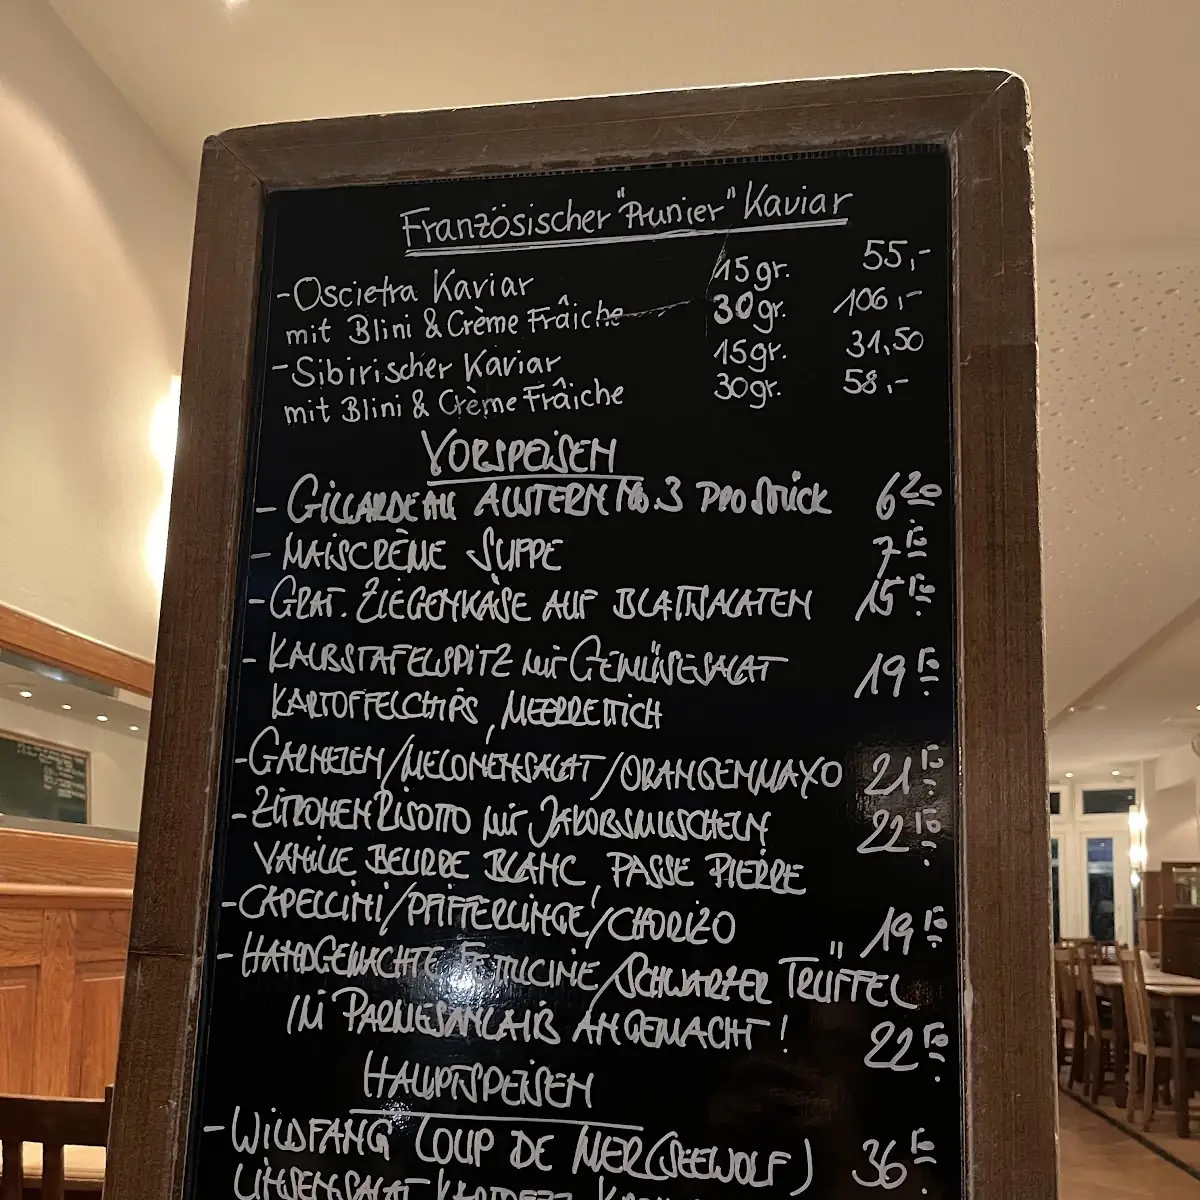 Französischer "Prunier" Kaviar
-Oscietra Kaviar 15gr. 55,-
mit Blini & Crème Frâiche 30gr. 106,-
-Sibirischer Kaviar 15gr. 31,50
mit Blini & Crème Frâiche 30gr. 58,-
VORSPEISEN
- GILLARDEAU AUSTERN No.3 PRO STÜCK 6 20
- MAISCRÈME SUPPE 7 50
- GRAT. ZIEGENKÄSE AUF BLATTSALATEN 15 50
- KALBSTAFELSPITZ mit GEMÜSESALAT 19 50
KARTOFFELCHIPS, MEERRETTICH
- GARNELEN/MELONENSALAT/ORANGENMAYO 21 50
- ZITRONENRISOTTO mit JAKOBSMUSCHELN, 22 50
VANILLE BEURRE BLANC, PASSE PIERRE
- CAPELLINI/PFIFFERLINGE/CHORIZO 19 50
- HANDGEMACHTE FETTUCINE/SCHWARZER TRÜFFEL
IM PARMESANLAIB ANGEMACHT! 22 50
HAUPTSPEISEN
- WILDFANG LOUP DE MER (SEEWOLF) 36 50
LINSENSALAT